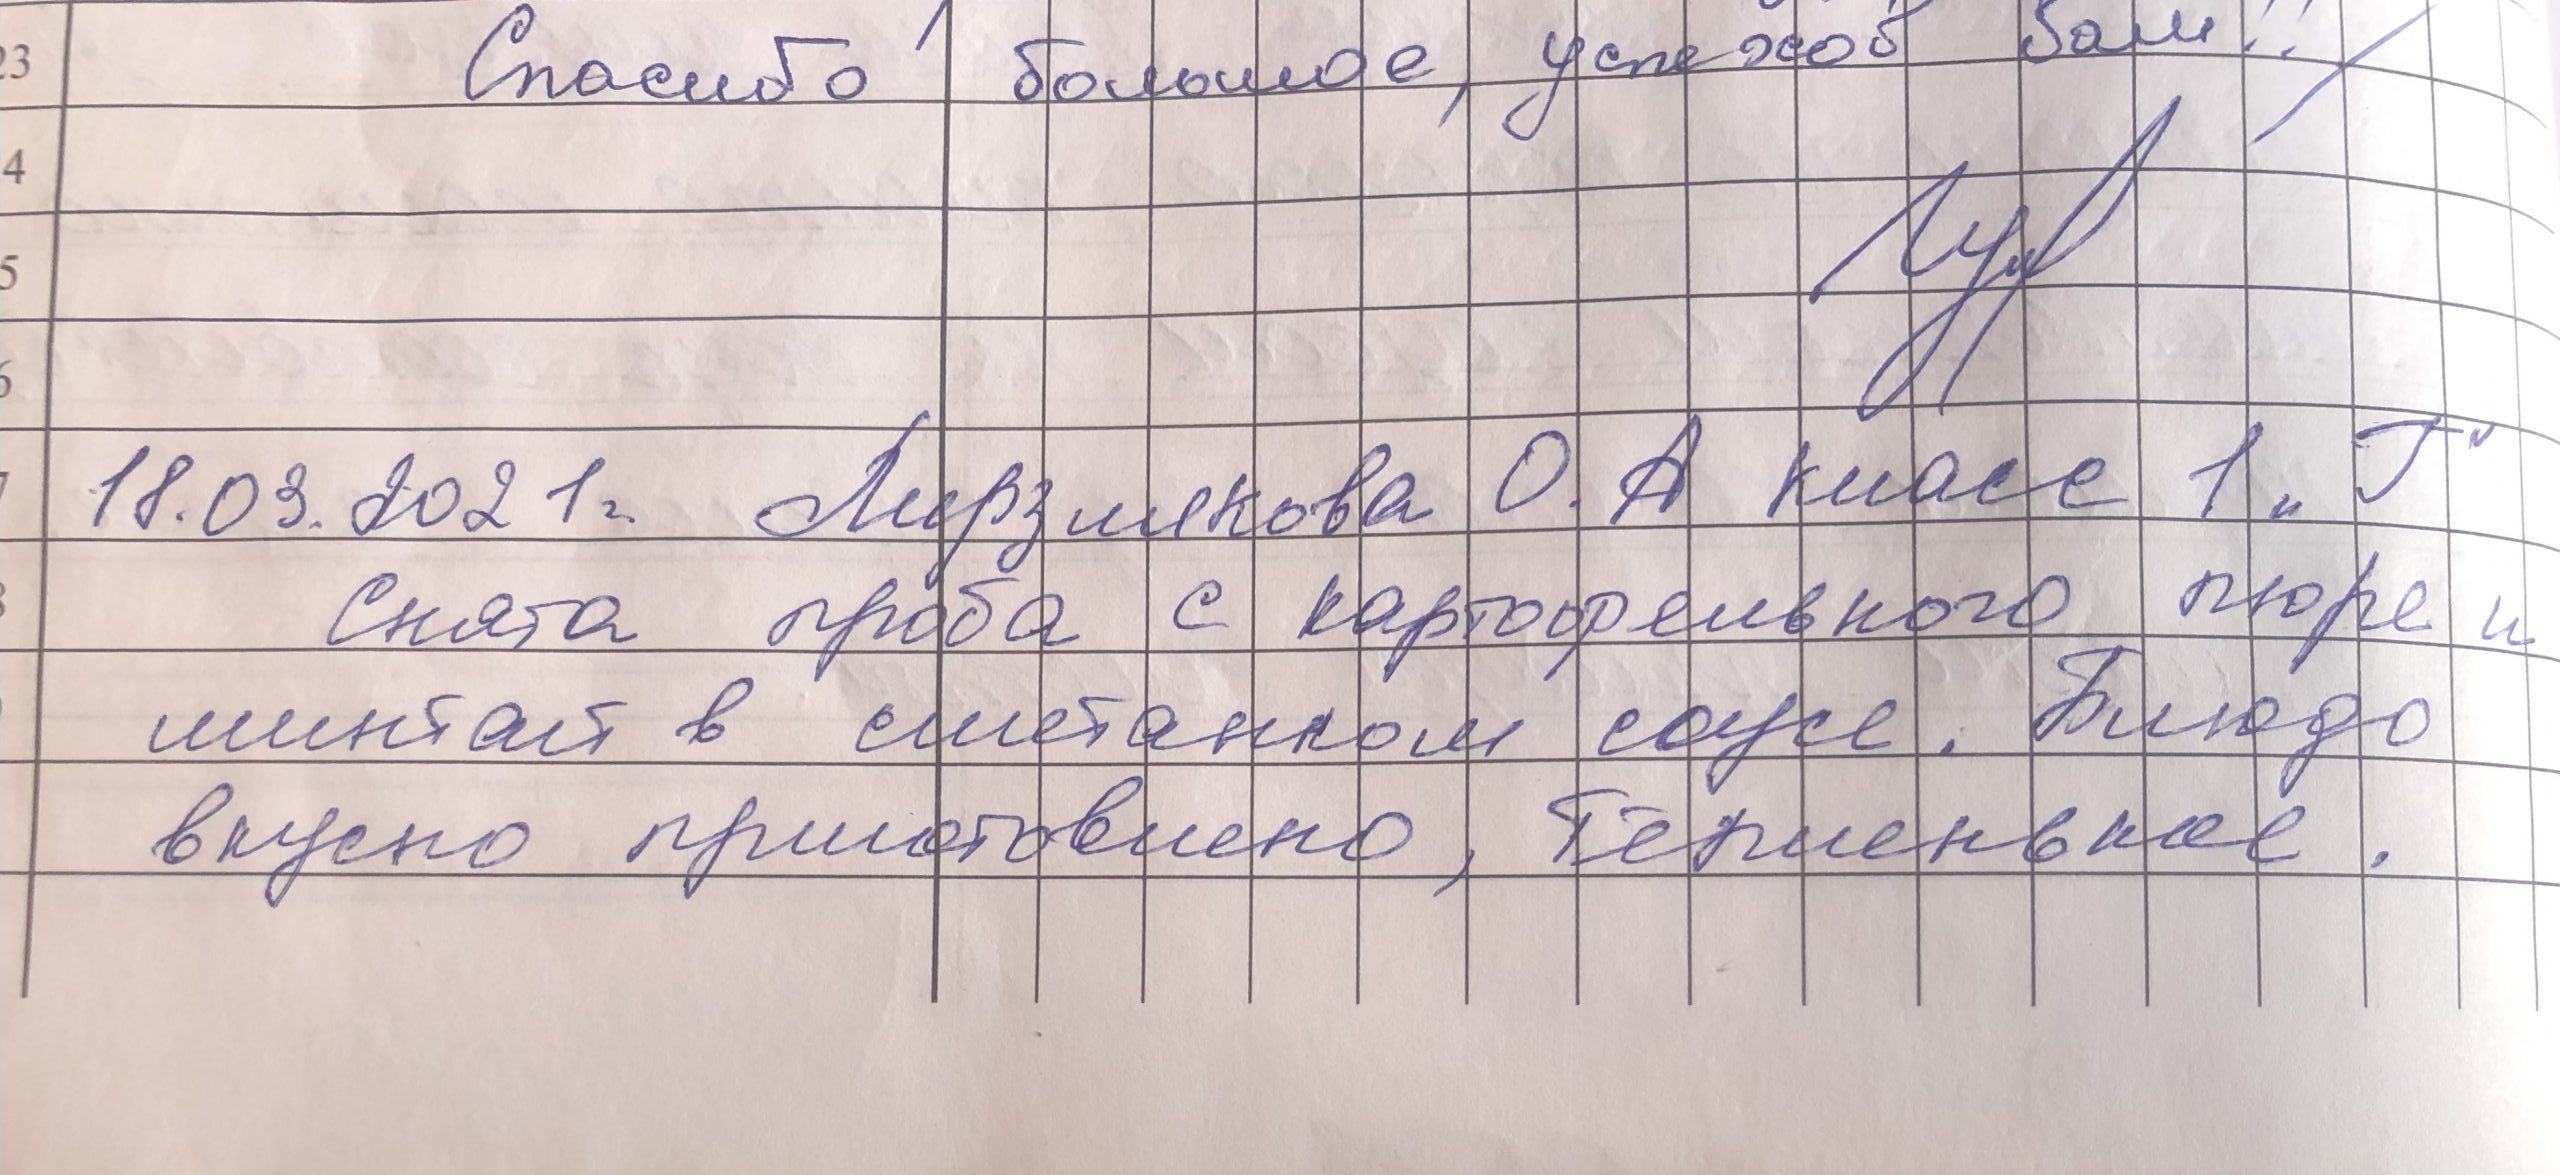 23 Спасибо большое, успехов Вам!!
4
5
6
7 18.03.2021г. Мирзликова О. А класс 1 „Г"
8 Снята проба с картофельного пюре и
минтат в сметанном соусе. Блюдо
вкусно приготовлено, тёпленькое.